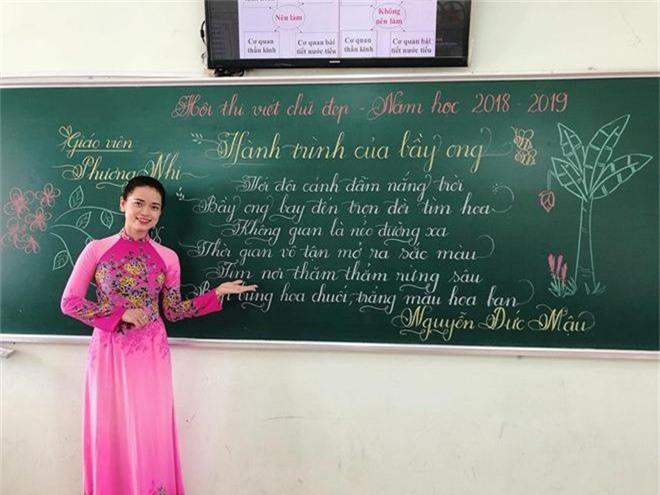 Nên làm
Không
nên làm
Cơ quan
thần kinh
Cơ quan bài
tiết nước tiểu
Cơ quan
thần kinh
Cơ quan bài
tiết nước tiểu
Hội thi viết chữ đẹp - Năm học 2018 - 2019
Giáo viên
Phương Nhi
Hành trình của bầy ong
Với đôi cánh đẫm nắng trời
Bầy ong bay đến trọn đời tìm hoa
Không gian là nẻo đường xa
Thời gian vô tận mở ra sắc màu
Tìm nơi thăm thẳm rừng sâu
bùng hoa chuối trắng màu hoa ban
Nguyễn Đức Mậu